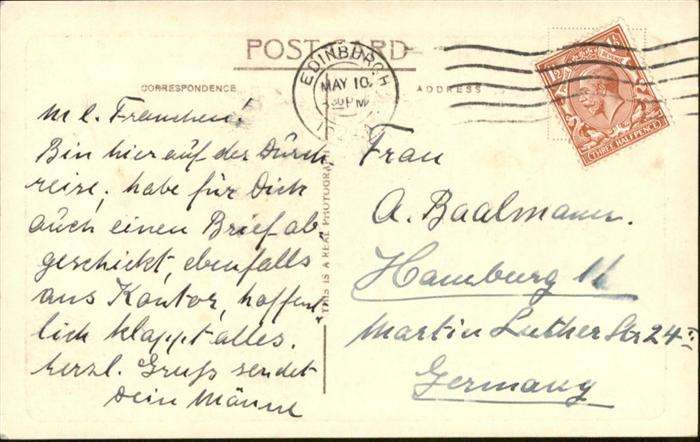 POST CARD
CORRESPONDENCE
ADDRESS
EDINBURGH
MAY 10
30 PM
THREE HALFPENCE
m l. Frauchen!
Bin hier auf der Durch
reise, habe für Dich
auch einen Brief ab
geschickt, ebenfalls
aus Kantor, hoffent
lich klappt alles.
Herzl. Gruß sendet
Dein Männe
"THIS IS A REAL PHOTOGRAPH"
Frau
A. Baalmann.
Hamburg
Martin Luther Str 24
Germany